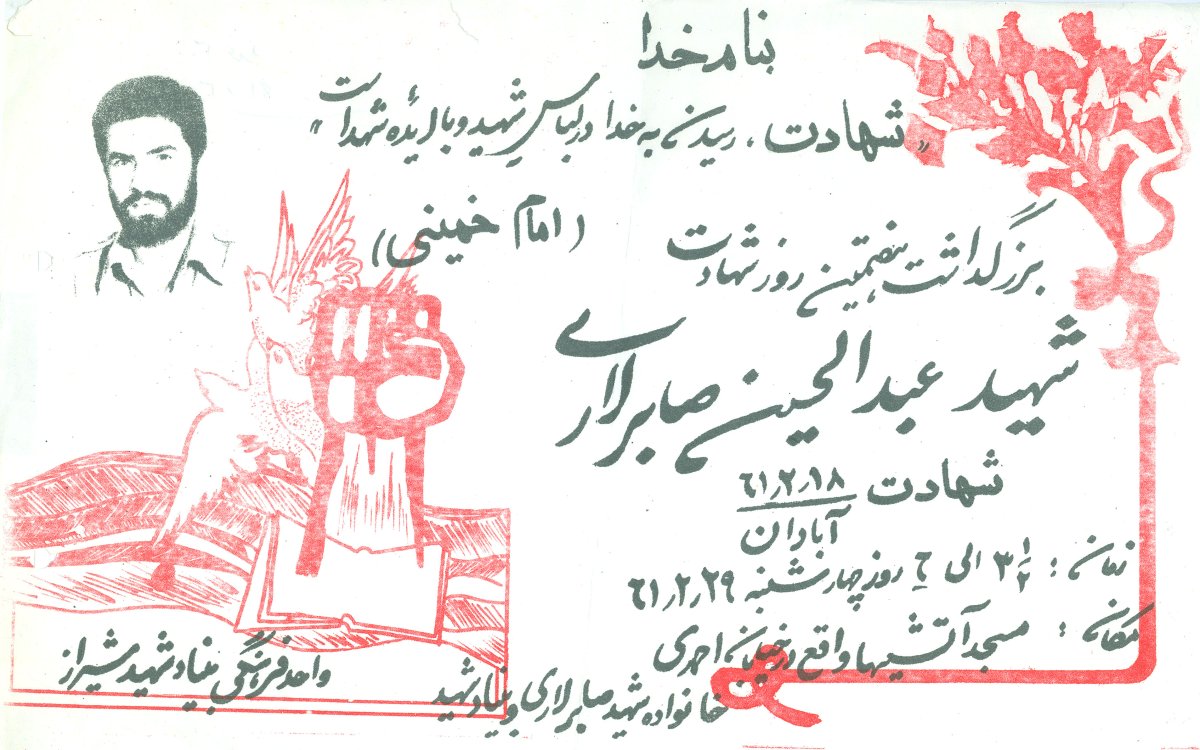 بنام خدا
«شهادت، رسیدن به خدا در لباس شهید و بال ایده شهداست»
(امام خمینی)
بزرگداشت هفتمین روز شهادت
شهید عبدالحسین صابر لاری
شهادت ۶۱٫۲٫۱۸
آبادان
زمان : ۳ ۱/۲ الی ۶ روز چهارشنبه ۶۱٫۲٫۲۹
مکان : مسجد آتشیها واقع در خیابان احمدی
خانواده شهید صابر لاری و بنیاد شهید
واحد فرهنگی بنیاد شهید شیراز